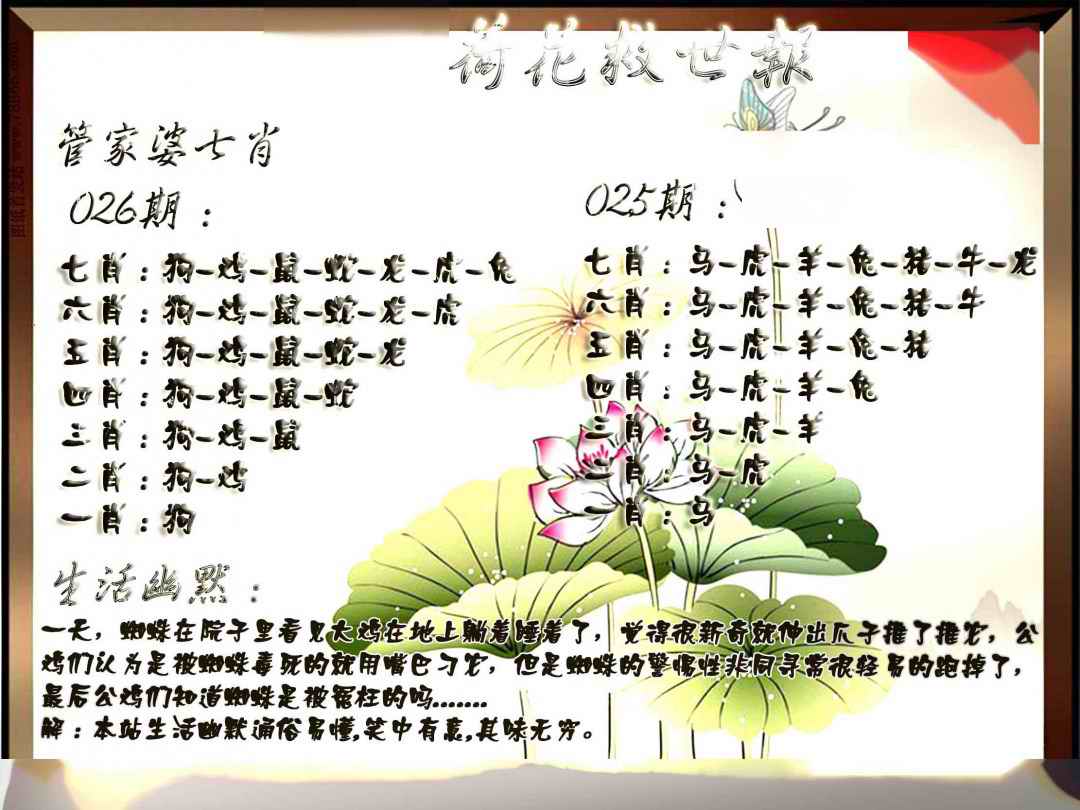 荷花救世報
管家婆七肖
026期：
七肖：狗-鸡-鼠-蛇-龙-虎-兔
六肖：狗-鸡-鼠-蛇-龙-虎
五肖：狗-鸡-鼠-蛇-龙
四肖：狗-鸡-鼠-蛇
三肖：狗-鸡-鼠
二肖：狗-鸡
一肖：狗
025期：
七肖：马-虎-羊-兔-猪-牛-龙
六肖：马-虎-羊-兔-猪-牛
五肖：马-虎-羊-兔-猪
四肖：马-虎-羊-兔
三肖：马-虎-羊
二肖：马-虎
一肖：马
生活幽默：
一天，蜘蛛在院子里看见大鸡在地上躺着睡着了，觉得很新奇就伸出爪子推了推它，公
鸡们认为是被蜘蛛毒死的就用嘴巴刁它，但是蜘蛛的警惕性非同寻常很轻易的跑掉了，
最后公鸡们知道蜘蛛是被冤枉的吗.......
解：本站生活幽默通俗易懂,笑中有意,其味无穷。